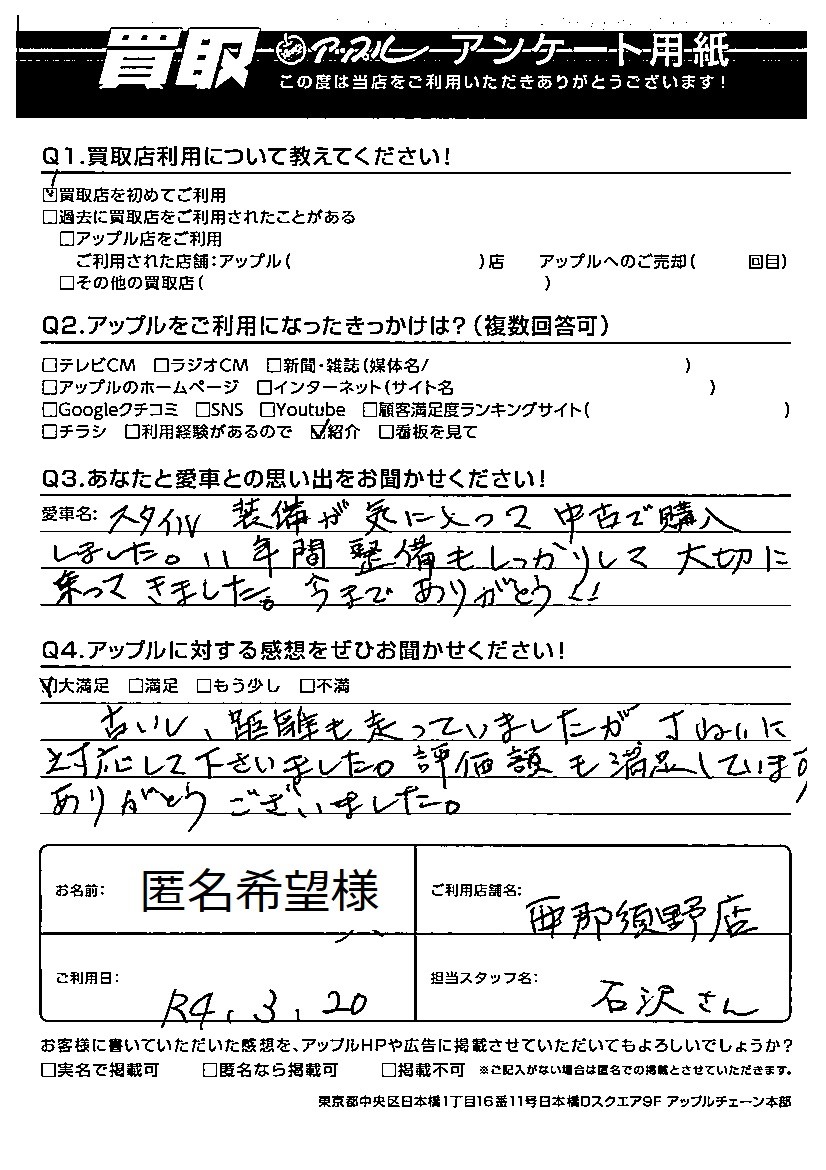 買取 アップル アンケート用紙
この度は当店をご利用いただきありがとうございます!
Q1.買取店利用について教えてください!
☑買取店を初めてご利用
□過去に買取店をご利用されたことがある
□アップル店をご利用
ご利用された店舗:アップル( )店 アップルへのご売却( 回目)
□その他の買取店( )
Q2.アップルをご利用になったきっかけは?(複数回答可)
□テレビCM □ラジオCM □新聞・雑誌(媒体名/ )
□アップルのホームページ □インターネット(サイト名 )
□Googleクチコミ □SNS □Youtube □顧客満足度ランキングサイト( )
□チラシ □利用経験があるので ☑紹介 □看板を見て
Q3.あなたと愛車との思い出をお聞かせください!
愛車名: スタイル 装備が気に入って中古で購入
しました。11年間整備もしっかりして大切に
乗ってきました。今までありがとう!!
Q4.アップルに対する感想をぜひお聞かせください!
☑大満足 □満足 □もう少し □不満
古いし、距離も走っていましたが、丁ねいに
対応して下さいました。評価額も満足しています
ありがとうございました。
お名前: 匿名希望様
ご利用店舗名: 西那須野店
ご利用日: R4.3.20
担当スタッフ名: 石沢さん
お客様に書いていただいた感想を、アップルHPや広告に掲載させていただいてもよろしいでしょうか?
□実名で掲載可 □匿名なら掲載可 □掲載不可 ※ご記入がない場合は匿名での掲載とさせていただきます。
東京都中央区日本橋1丁目16番11号日本橋Dスクエア9F アップルチェーン本部